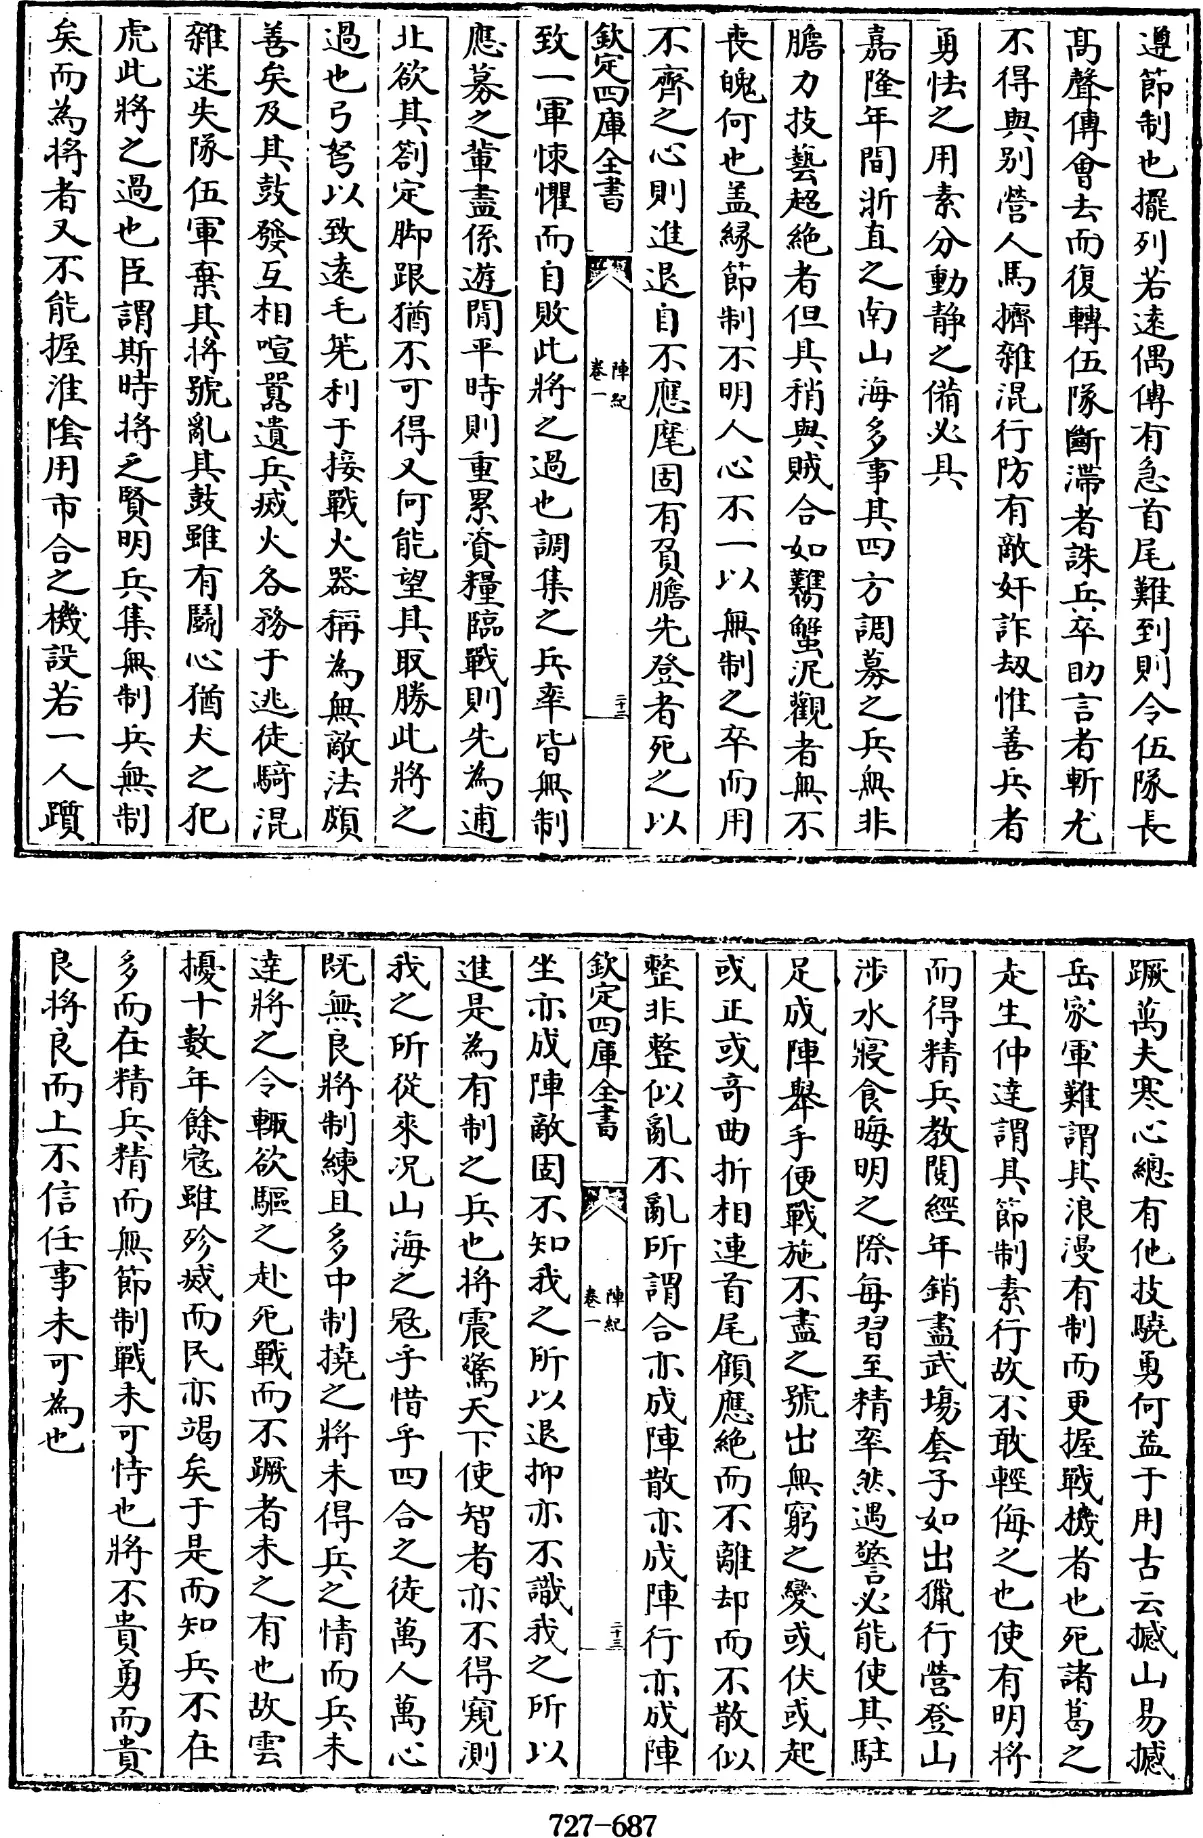 遵節制也擺列若遠偶傳有急首尾難到則令伍隊長
高聲傳會去而復轉伍隊斷滯者誅兵卒助言者斬尤
不得與别營人馬擠雜混行防有敵奸詐刼惟善兵者
勇怯之用素分動静之備必具
嘉隆年間浙直之南山海多事其四方調募之兵無非
膽力技藝超絶者但其稍與賊合如鷄蟹泥觀者無不
喪魄何也盖緣節制不明人心不一以無制之卒而用
不齊之心則進退自不應麾固有負膽先登者死之以
欽定四庫全書
陣紀
卷一
二十二
致一軍悚懼而自敗此將之過也調集之兵率皆無制
應募之輩盡係遊閒平時則重累資糧臨戰則先為逋
北欲其劄定脚跟猶不可得又何能望其取勝此將之
過也弓弩以致遠毛筅利于接戰火器稱為無敵法頗
善矣及其鼓發互相喧囂遺兵滅火各務于逃徒騎混
雜迷失隊伍軍棄其將號亂其鼓雖有鬭心猶犬之犯
虎此將之過也臣謂斯時將乏賢明兵集無制兵無制
矣而為將者又不能握淮陰用市合之機設若一人躓
蹶萬夫寒心總有他技驍勇何益于用古云撼山易撼
岳家軍難謂其浪漫有制而更握戰機者也死諸葛之
走生仲達謂其節制素行故不敢輕侮之也使有明將
而得精兵教閲經年銷盡武塲套子如出獵行營登山
涉水寢食晦明之際每習至精卒然遇警必能使其駐
足成陣舉手便戰施不盡之號出無窮之變或伏或起
或正或奇曲折相連首尾顧應絶而不離却而不散似
整非整似亂不亂所謂合亦成陣散亦成陣行亦成陣
欽定四庫全書
陣紀
卷一
二十三
坐亦成陣敵固不知我之所以退抑亦不識我之所以
進是為有制之兵也將震驚天下使智者亦不得窺測
我之所從來况山海之冦乎惜乎四合之徒萬人萬心
既無良將制練且多中制撓之將未得兵之情而兵未
達將之令輒欲驅之赴死戰而不蹶者未之有也故雲
擾十數年餘冦雖殄滅而民亦竭矣于是而知兵不在
多而在精兵精而無節制戰未可恃也將不貴勇而貴
良將良而上不信任事未可為也
727-687